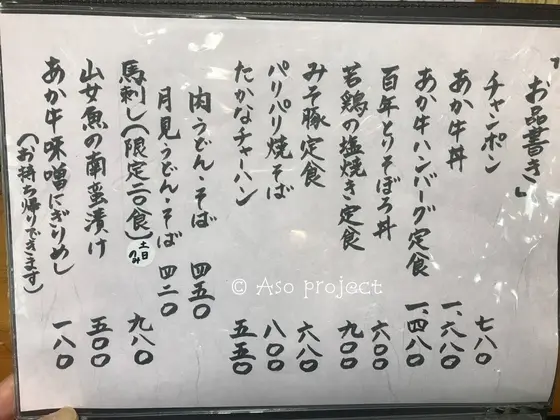 「お品書き」
チャンポン 七八〇
あか牛丼 一、六八〇
あか牛ハンバーグ定食 一、四八〇
百年とりそぼろ丼 六〇〇
若鶏の塩焼き定食 九〇〇
みそ豚定食 六八〇
パリパリ焼そば 八〇〇
たかなチャーハン 五五〇
肉うどん・そば 四五〇
月見うどん・そば 四二〇
馬刺し(限定二〇食) 土日のみ 九八〇
山女魚の南蛮漬け 五〇〇
あか牛味噌にぎりめし 一八〇
(お持ち帰りできます)
© Aso project